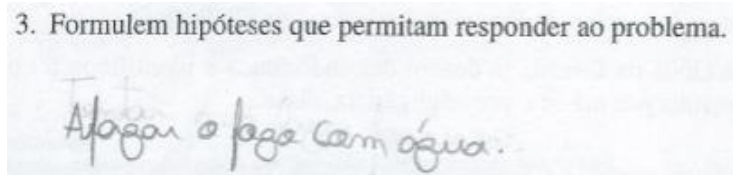 3. Formulem hipóteses que permitam responder ao problema.
Apagar o fogo com água.